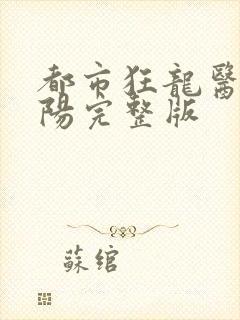 都市狂龍醫
陽完整版
蘇綰